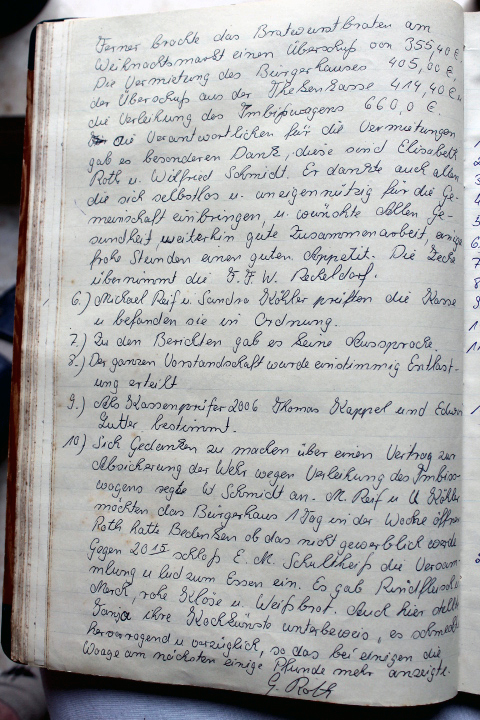 Ferner brachte das Bratwurstbraten am
Weihnachtsmarkt einen Überschuß von 355,40 €,
Die Vermietung des Bürgerhauses 405,00 €,
der Überschuß aus der Thekenkasse 414,40 € u.
die Verleihung des Imbißwagens 660,0 €.
die Verantwortlichen für die Vermietungen
gab es besonderen Dank, diese sind Elisabeth
Roth u. Wilfried Schmidt. Er dankte auch allen
die sich selbstlos u. uneigennützig für die Ge-
meinschaft einbringen, u. wünschte Allen Ge-
sundheit weiterhin gute Zusammenarbeit, einige
frohe Stunden einen guten Appetit. Die Zeche
übernimmt die F.F.W. Reckeldorf.
6.) Michael Reif u. Sandra Köhler prüften die Kasse
u befanden sie in Ordnung.
7.) Zu den Berichten gab es keine Aussprache.
8.) Der ganzen Vorstandschaft wurde einstimmig Entlast-
ung erteilt
9.) Als Kassenprüfer 2006 Thomas Kappel und Edwin
Lutter bestimmt.
10) Sich Gedanken zu machen über einen Vertrag zur
Absicherung der Wehr wegen Verleihung des Imbiss-
wagens regte W Schmidt an. M. Reif u. U Köhler
möchten das Bürgerhaus 1 Tag in der Woche öffnen
Roth hatte Bedenken ob das nicht gewerblich werde
Gegen 20 15 schloß E. M. Schultheiß die Versam-
mlung u lud zum Essen ein. Es gab Rindfleisch
Merck, rohe Klöse u. Weißbrot. Auch hier stellte
Tanja ihre Kochkünste unterbeweis, es schmeckte
hervorragend u vorzüglich, so das bei einigen die
Waage am nächsten einige Pfunde mehr anzeigte.
G. Roth